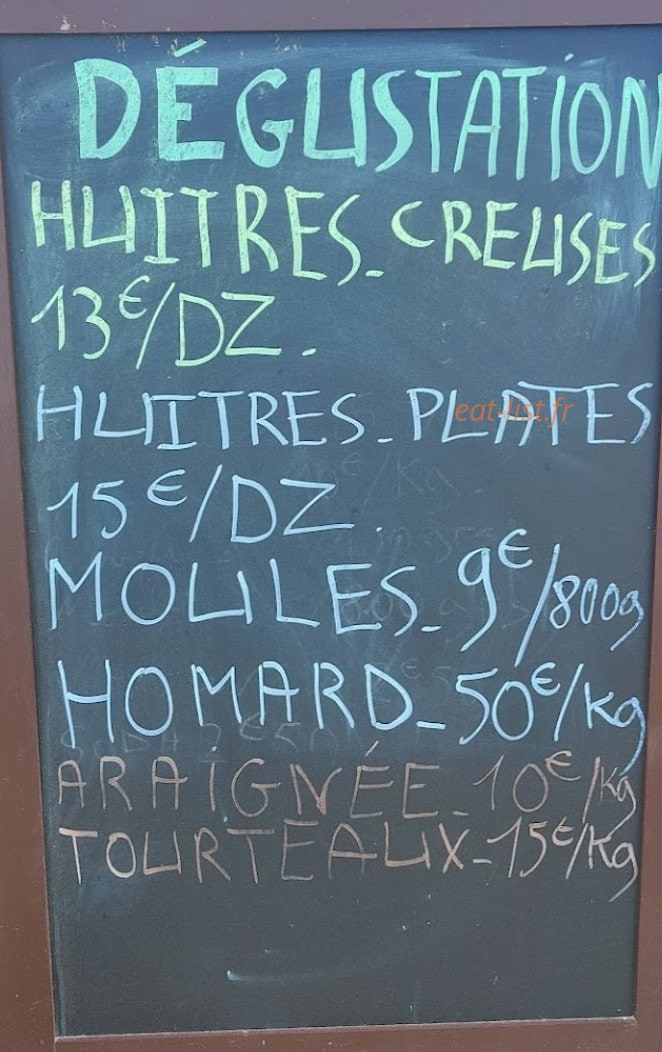 DÉGUSTATION
HUITRES_CREUSES
13€/DZ.
HUITRES_PLATES
eat-list.fr
15€/DZ.
MOULES_9€/800g
HOMARD_50€/kg
ARAiGNÉE_10€/kg
TOURTEAUX_15€/kg